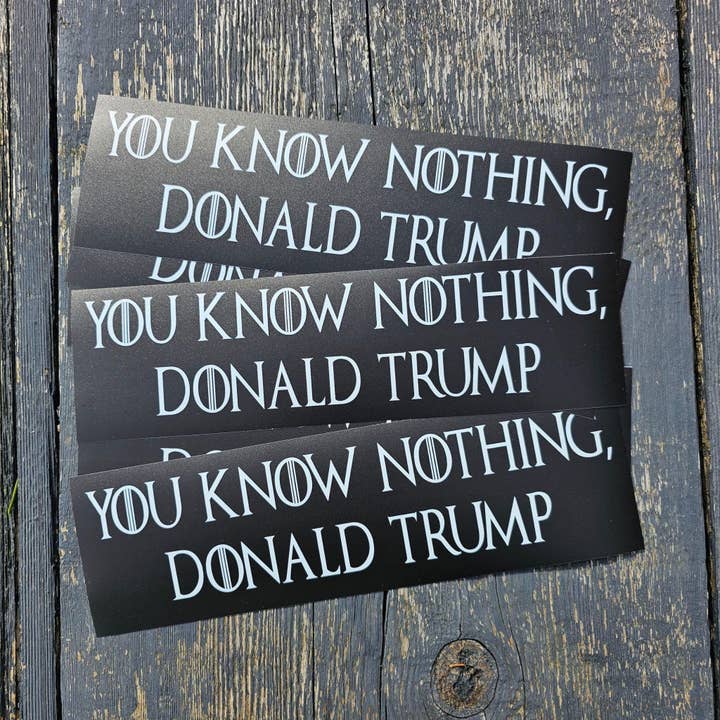 YOU KNOW NOTHING,
DONALD TRUMP
DONALD
YOU KNOW NOTHING,
DONALD TRUMP
YOU KNOW NOTHING,
DONALD TRUMP